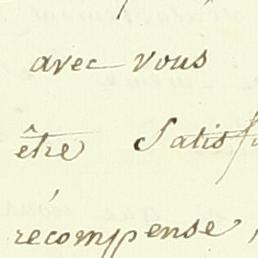 avec vous
être Satisf
récompense,